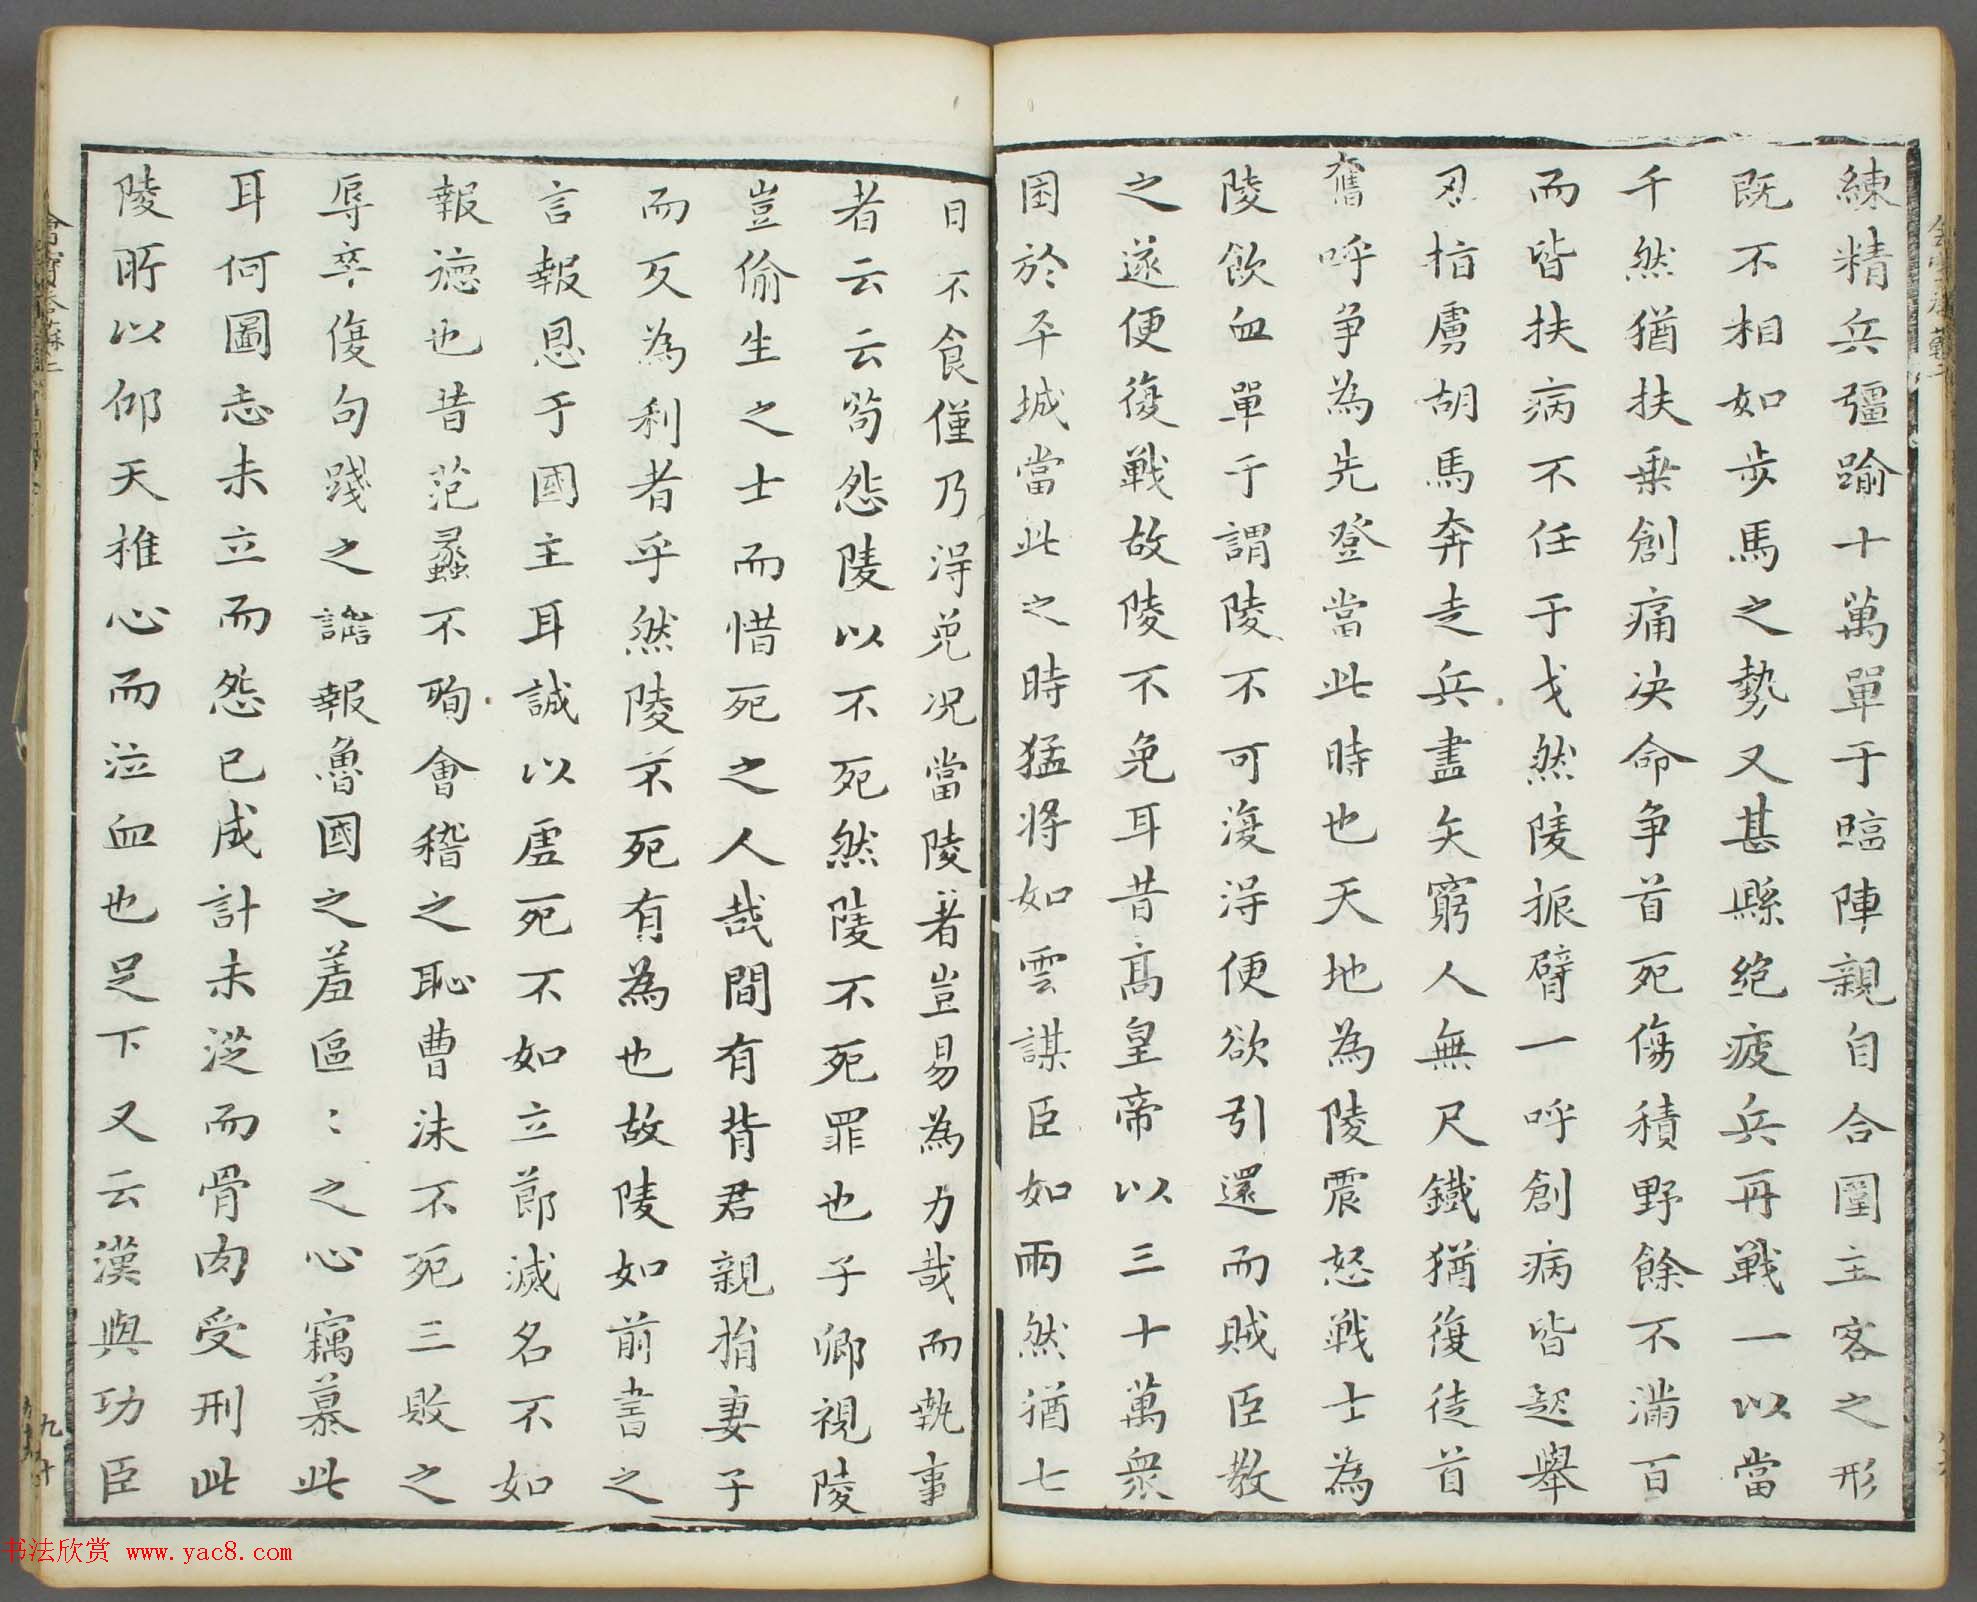 練精兵彊踰十萬單于臨陣親自合圍主客之形
既不相如步馬之勢又甚縣絕疲兵再戰一以當
千然猶扶乗創痛决命争首死傷積野餘不滿百
而皆扶病不任于戈然陵振臂一呼創病皆起舉
刃指虜胡馬奔走兵盡矢窮人無尺鐵猶復徒首
奮呼争為先登當此時也天地為陵震怒戰士為
陵飲血單于謂陵不可復得便欲引還而賊臣教
之遂便復戰故陵不免耳昔髙皇帝以三十萬衆
困於平城當此之時猛將如雲謀臣如雨然猶七
日不食僅乃得免况當陵者豈易為力哉而執事
者云云苟怨陵以不死然陵不死罪也子卿視陵
豈偷生之士而惜死之人哉間有背君親捐妻子
而反為利者乎然陵不死有為也故陵如前書之
言報恩于國主耳誠以虚死不如立節滅名不如
報德也昔范蠡不殉會稽之恥曹沫不死三敗之
辱卒復句踐之讐報魯國之羞區〻之心竊慕此
耳何圖志未立而怨已成計未從而骨肉受刑此
陵所以仰天推心而泣血也足下又云漢與功臣
书法欣赏 www.yac8.com